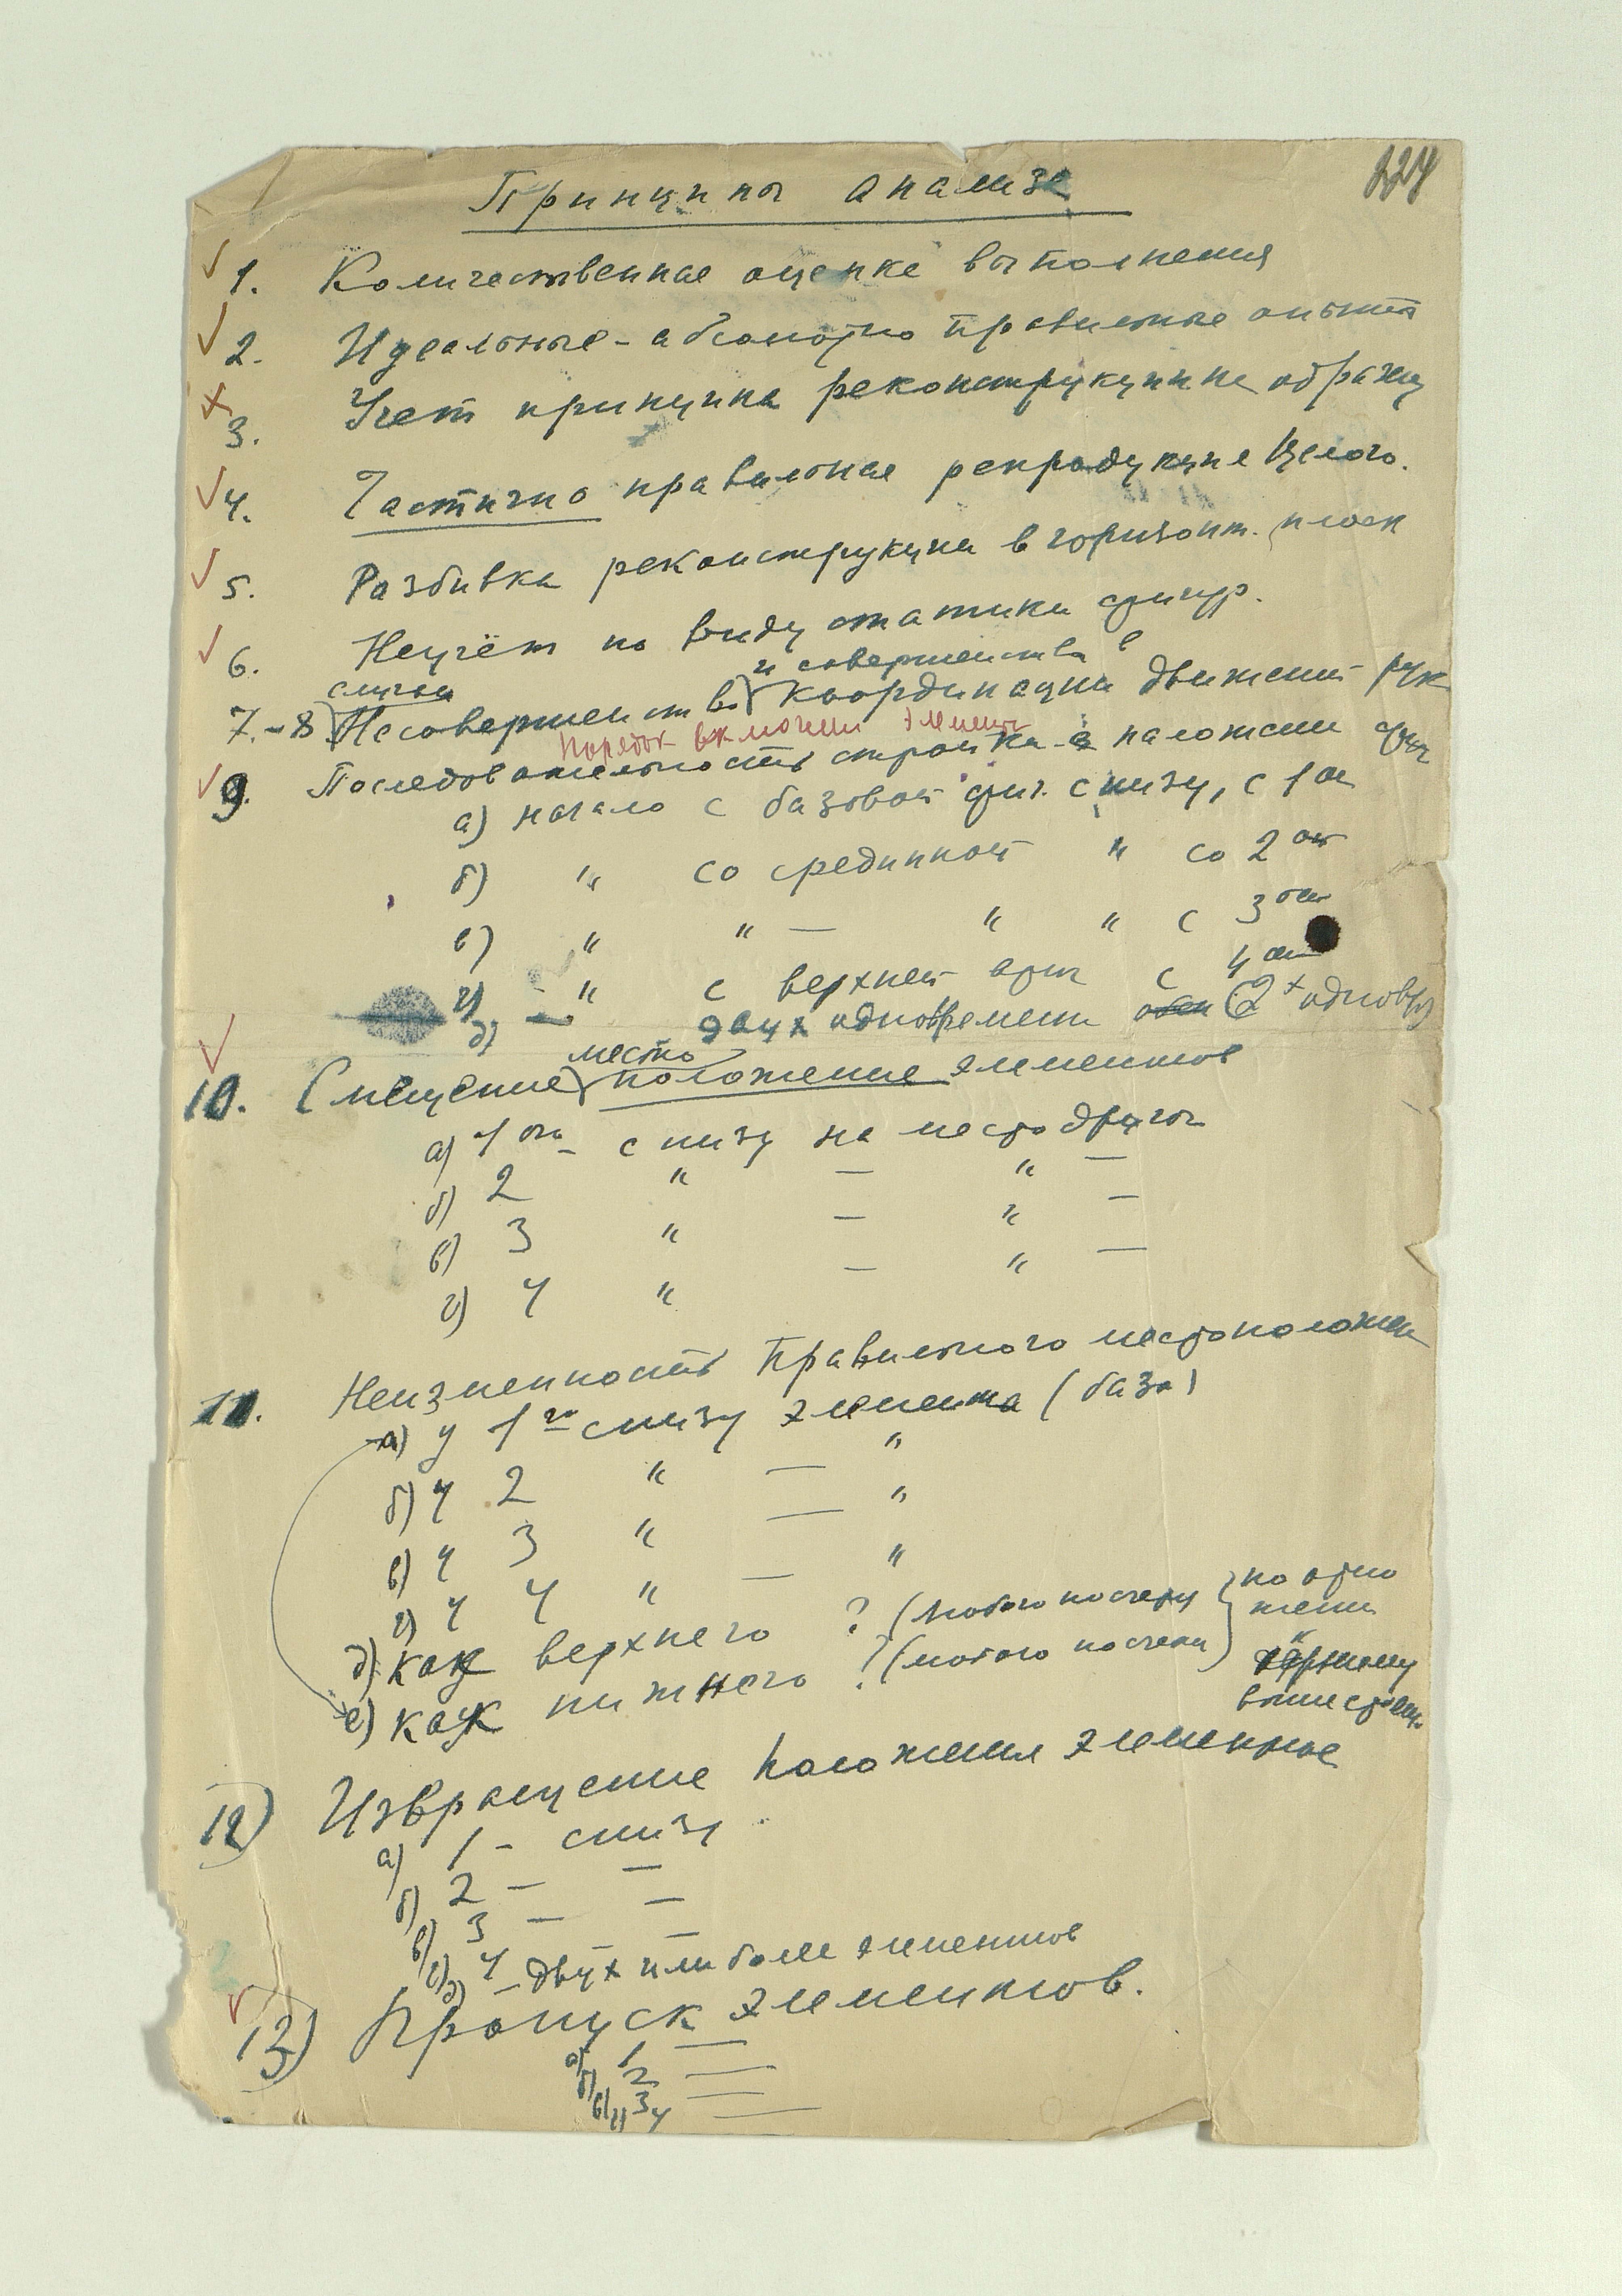 224
Принципы анализа
1. Количественная оценка выполнения
2. Идеальные - абсолютно правильные опыты
3. Учет принципа реконструкции на образец
4. Частично правильная репродукция целого.
5. Разбивка реконструкции в горизонт. плоск
6. Неучёт по виду статики фигур.
и совершенства в
случаи
7.-8 Несовершенств координации движений рук
Порядок включения элемент
9. Последовательность стройки в наложении фиг
а) начало с базовой фиг. снизу, с 1ой
б) " со срединной " со 2ой
в) " " — " " с 3ей
г) - " с верхней фиг с 4ой
д) — двух одновременно (2х одновр)
место
10. Смещение положение элементов
а) 1ой - снизу на место других
б) 2 " — " —
в) 3 " — " —
г) 4 " — " —
11. Неизменность правильного местоположен
а) у 1го снизу элемента (база)
б) у 2 " — "
в) у 3 " — "
г) у 4 " — "
д) как верхнего ? (любого по счету } по отно
е) как нижнего ? (любого по счету) шению
к
вышестоящ.
12) Извращение положения элементов
а) 1 - снизу
б) 2 — —
в) 3 — —
г) 4
д) - двух или более элементов
13) Пропуск элементов.
а) 1 —
б) 2 —
в) 3 —
г) 4 —